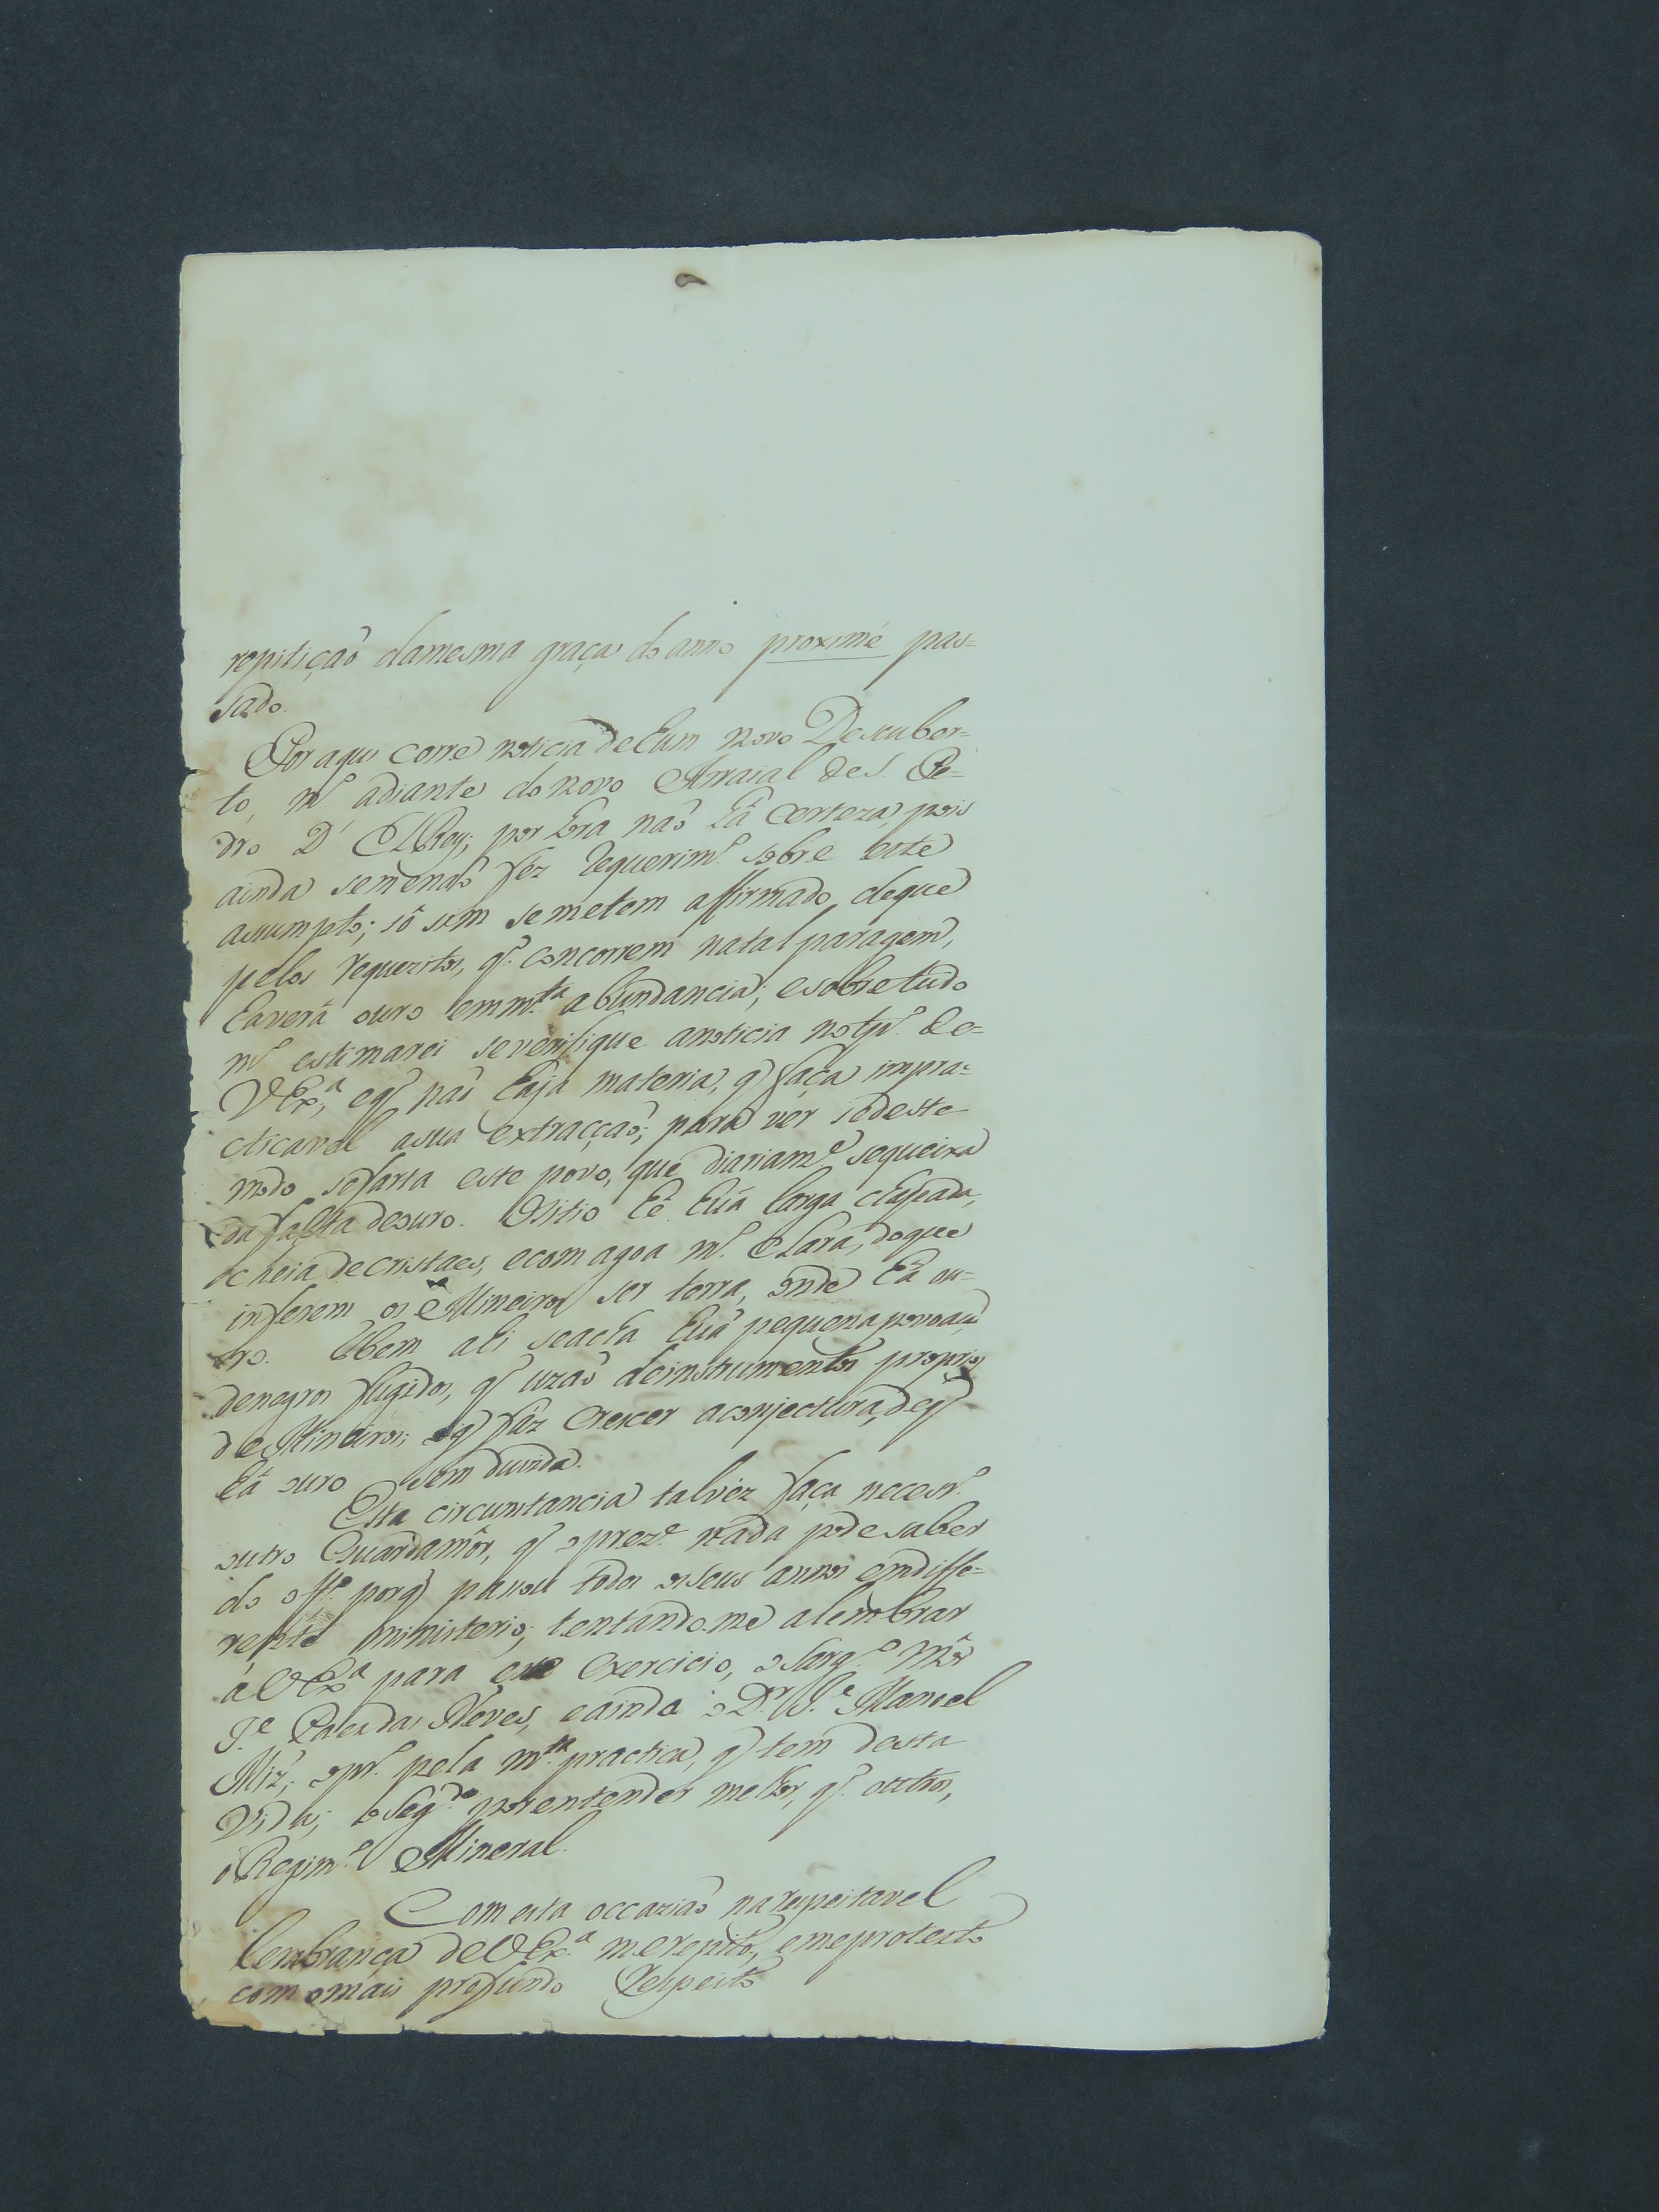 repitiçaõ damesma graça do anno proximé pas=
sado.
Por aqui corre noticia de hum novo Descuber=
to, m.to adiante do novo Arraial de S. Pe=
dro D' ElRey; por hora naõ há certeza, pois
ainda semenaõ fez requerim.to sobre este
assumpto; só sim semetem affirmado, deque
pelos requezitos, q.' concorrem natal paragem,
haverá ouro emm.ta abundancia; esobretudo
m.to estimarei severifique anoticia notp.o de=
VEx.a, eq' naõ haja materia, q' faça impra=
cticavel asua extracçaõ; para vér sedeste
modo sefarta este povo, que diariam.e sequeixa
da falta deouro. Ositio hé huã larga chapada,
cheia decristaes, ecom agoa m.to clara, doque
inferem os Mineiros ser terra, onde há ou=
ro. Bem ali seacha huã pequena povoaçaõ
denegros fugidos, q' uzaõ deinstrumentos proprios
de Mineiros; oq' fáz crescer aconjectura, deq'
há ouro sem duvida.
Esta circumstancia talvéz faça necess.o
outro Guardamór, q' oprez.e nada pode saber
do off.o porq' passou todos osseus annos emdiffe=
rente ministerio; tentando-me alembrar
a VEx.a para esse exercicio, osarg.to Mór
J.e das Neves, eainda o D.r J.e Manoel
Miz'; opr.o pela m.ta practica, q' tem desta
Vida; oseg.do porentender melhor, q.' outros,
o Regim.to Mineral.
Com esta occaziaõ narespeitavel
lembrança deVEx.a merepito, emeprotesto
com omais profundo Respeito